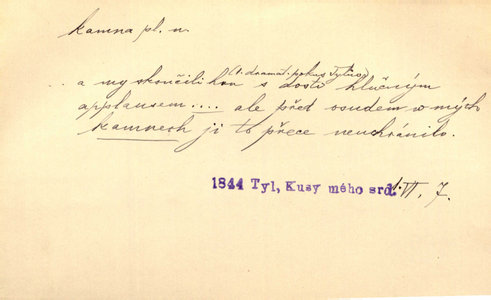 kamna pl. n.
(1. dramat. pokus Tylův)
... a my skončili hon s dosti hlučným
applausem .... ale před osudem v mých
kamnech ji to přece neuchránilo.
1844 Tyl, Kusy mého srd. VI, 7.